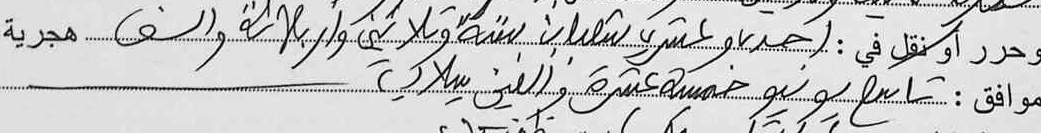 وحرر أو نقل في : احد وعشرين شعبان ستة وثلاثين وأربعمائة وألف هجرية
موافق : تاسع يونيو خمسة عشرة وألفين ميلادي